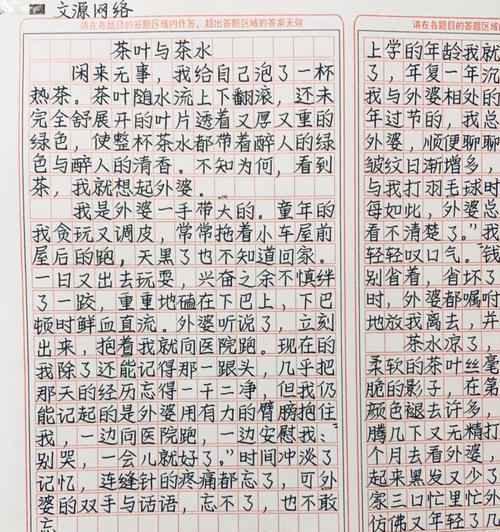 文源网络
请在各题目的答题区域内作答，超出答题区域的答案无效
茶叶与茶水
闲来无事，我给自己泡了一杯
热茶。茶叶随水流上下翻滚，还未
完全舒展开的叶片透着又厚又重的
绿色，使整杯茶水都带着醉人的绿
色与醉人的清香。不知为何，看到
茶，我就想起外婆。
我是外婆一手带大的。童年的
我贪玩又调皮，常常抱着小车屋前
屋后的跑，天黑了也不知道回家。
一日又出去玩耍，兴奋之余不慎绊
了一跤，重重地磕在下巴上，下巴
顿时鲜血直流。外婆听说了，立刻
出来，抱着我就向医院跑。现在的
我除了还能记得那一跟头，几乎把
那天的经历忘得一干二净，但我仍
能记起的是外婆用有力的臂膀抱住
我，一边向医院跑，一边安慰我：
别哭，一会儿就好了。”时间冲淡了
记忆，连缝针的疼痛都忘了，可外
婆的双手与话语，忘不了，也不敢
忘
请在各题目的答题区域
上学的年龄我就
了，年复一年沉
我与外婆相处的
年过节的，我总
外婆，顺便聊聊
皱纹日渐增多，
与我打羽毛球时
每如此，外婆总
看不清楚了。”我
轻轻叹口气。钱
别省着，省坏了
时，外婆都嘱咐
地放我离去，并
茶水凉了，
柔软的茶叶丝毫
脆的影子，在第
颜色褪去许多，
腾几下又无精打
个月去看外婆，
起来黑发又少了
家三口忙里忙外
仿佛又年轻了几